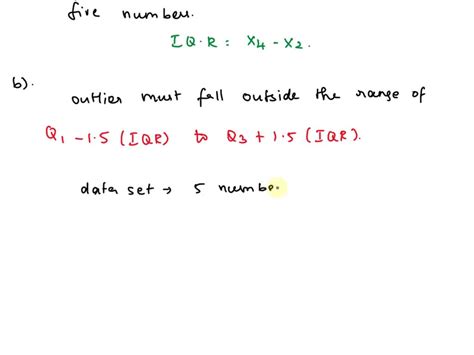 five number.
IQ.R = X4 - X2.
b).
outlier must fall outside the range of
Q1 - 1.5 (IQR) to Q3 + 1.5 (IQR).
data set → 5 numbe